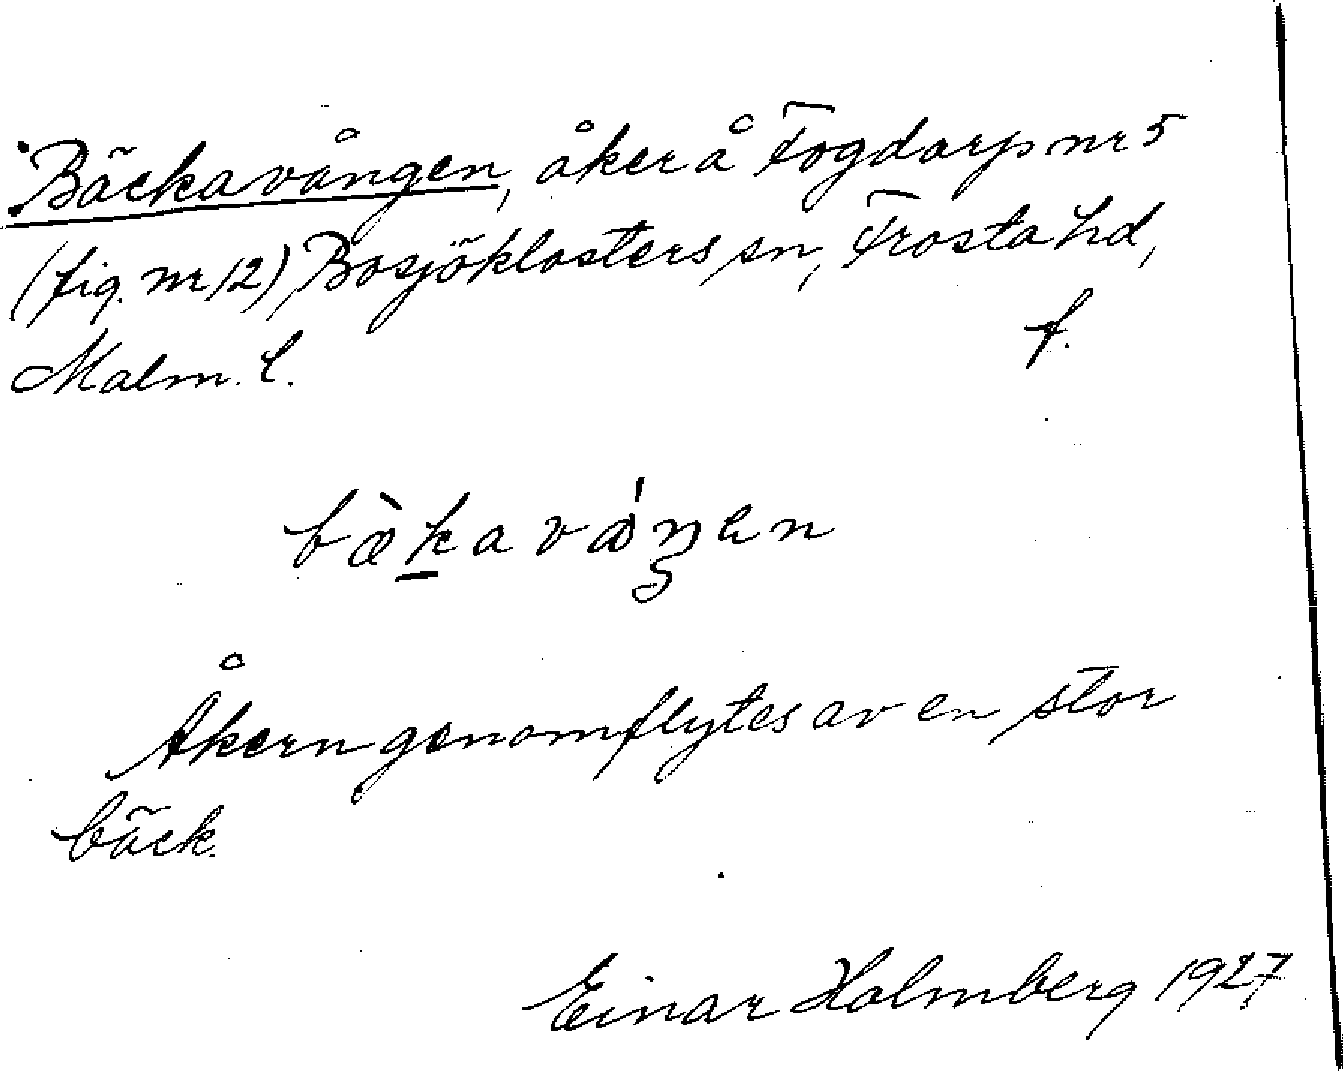 Bäckavången, åker å Fogdarp nr 5
(fig. nr 12), Bosjöklosters sn, Frosta hd,
Malm. l. f.
bæ̀k̠avåŋ́en
Åkern genomflytes av en stor
bäck.
Einar Holmberg 1927